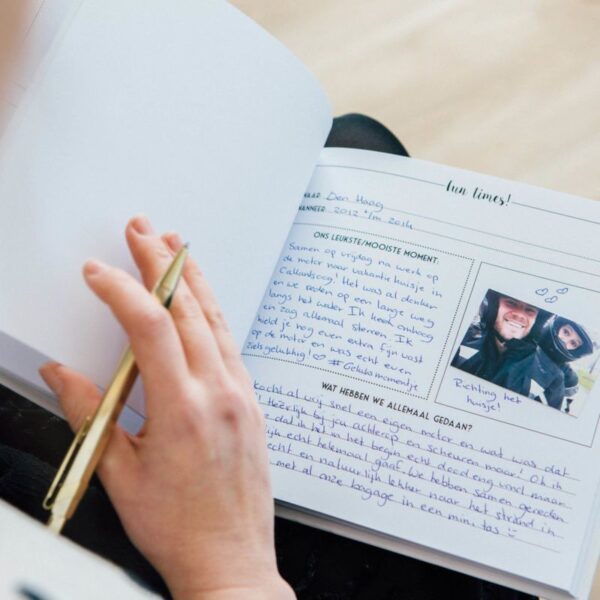 fun times!
WAAR Den Haag
WANNEER 2012 t/m 2014
ONS LEUKSTE/MOOISTE MOMENT:
Samen op vrijdag na werk op
de motor naar vakantie huisje in
Callantsoog! Het was al donker
en we reden op een lange weg
langs het water. Ik keek omhoog
en zag allemaal sterren. Ik
hield je nog even extra fijn vast
op de motor en was echt even
ziels gelukkig! #Geluksmomentje
Richting het
huisje!
WAT HEBBEN WE ALLEMAAL GEDAAN?
kocht al vrij snel een eigen motor en wat was dat
! Heerlijk bij jou achterop en scheuren maar! Ook
dat ik het in het begin echt dood eng vond maar
echt helemaal gaaf. We hebben samen gereden
echt en natuurlijk lekker naar het strand in
met al onze bagage in een mini tas